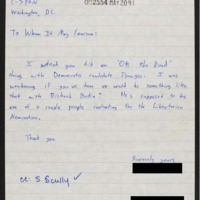 C-SPAN
002554 MAY 20 91
Washington, D.C.
To Whom It May Concern:
I noticed you did an "On the Road"
thing with Democratic candidate Tsongas. I was
wondering if you have or would do something like
that with Richard Boddie? He's supposed to be
one of a couple people contending for the Libertarian
Nomination.
Thank you
Sincerely yours,
cc: S. Scully ✓